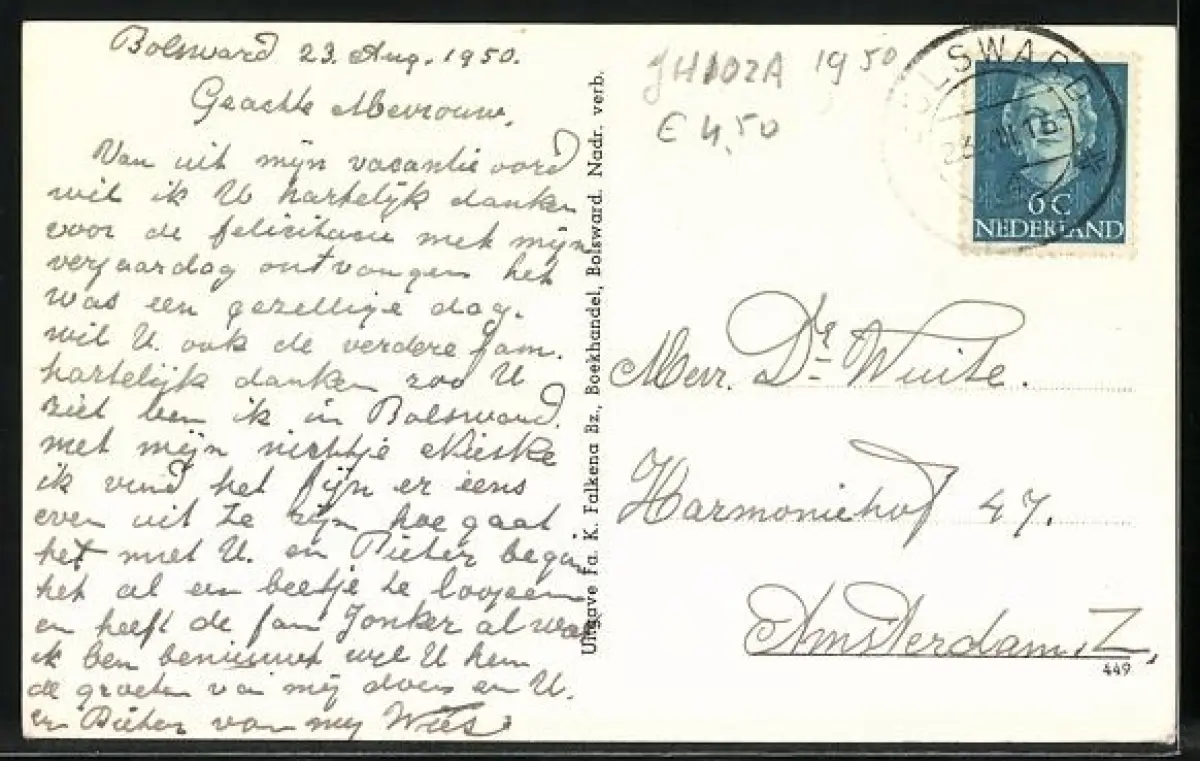 Bolsward 23 Aug. 1950.
Geachte Mevrouw,
Van uit mijn vacantie oord
wil ik U hartelijk danken
voor de felicitatie met mijn
verjaardag ontvangen het
was een gezellige dag.
wil U. ook de verdere fam.
hartelijk danken zoo U
ziet ben ik in Bolsward.
met mijn nichtje Nieske
ik vind het fijn er eens
even uit te zijn hoe gaat
het met U. en Pieter begin
het al een beetje te loopen
en heeft de fam Jonker al
ik ben benieuwt wil U hem
de groeten van mij doen en U.
en Pieter van mij Wies
Uitgave Fa. K. Falkena Bz., Boekhandel, Bolsward. Nadr. verb.
JH1002A 1950
€ 4,50
BOLSWARD
6 C
NEDERLAND
Mevr. Dr Wuite.
Harmoniehof 47.
Amsterdam. Z,
449